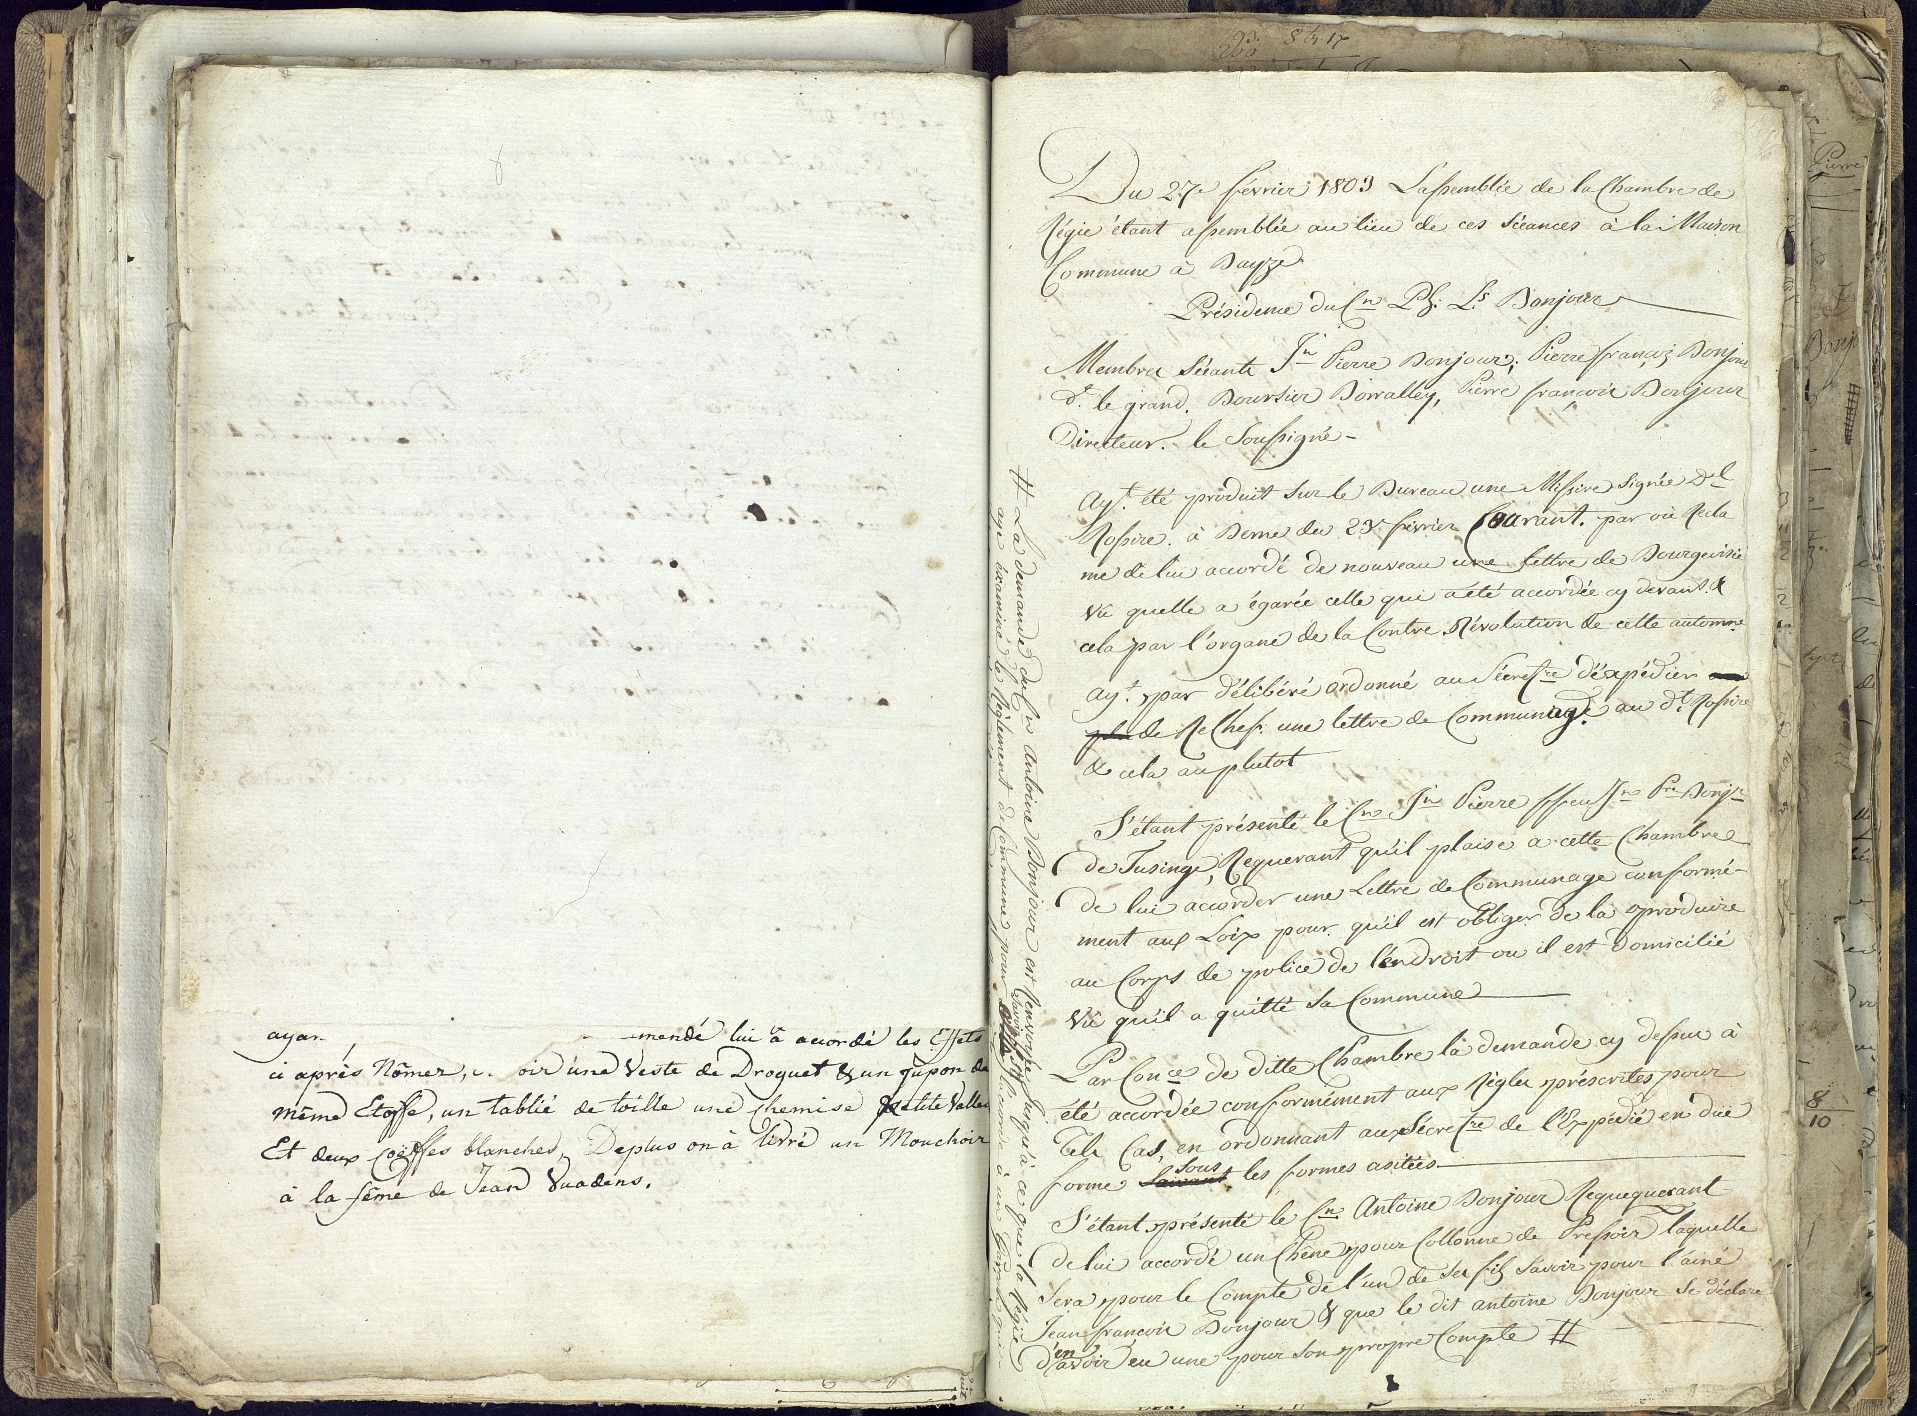 ayan mendé lui à accordé les Effets
ci après Nômez, oir d'une Veste de Droguet & un jupon de
même Etoffe, un tablié de toille une chemise petite Valleu
Et deux coeffes blanches, Deplus on à livré un Mouchoir
à la fême de Jean Vuadens.
Du 27e février 1803 Lassemblée de la Chambre de
Régie étant assemblée au lieu de ces séances à la Maison
Commune à
Présidence du Cn Ph: Ls Bonjour
Membres Séants Jn Pierre Bonjour, Pierre françois Bonjour
dt le grand. Boursier Borralley, Pierre françois Bonjour
Directeur. le Soussigné -
Ayt été produit sur le Bureau une Missive signée Dl
Rossire. à Berne du 23e février Courant. par où Recla
me de lui accordé de nouveau une lettre de Bourgeoisie
Vû quelle a égarée celle qui a été accordée cy devant &
cela par l'organe de la Contre Révolution de cette automne
Ayt par délibéré ordonné au Sécretre d'éxpédier
de Rechef. une lettre de Communage au dt Rossire
& cela au plutot
S'étant présenté le Cn Jn Pierre ffeu Jn Pre Bonjr
de Fusinge, Requerant qu'il plaise a cette Chambre
de lui accorder une Lettre de Communage conformé-
ment aux Loix pour qu'il est obliger de la produire
au Corps de police de l'éndroit ou il est Domicilié
Vû qu'il a quitté sa Commune
Par Conce de ditte Chambre la demande cy dessus à
été accordée conformément aux Règles préscrites pour
Tels Cas, en ordonnant aux Sécretre de l'Expédié en düe
forme suivant sous les formes usitées
S'étant présenté le Cn Antoine Bonjour Requequerant
de lui accordé un Chêne pour Collonne de Pressoir laquelle
Sera pour le Compte de l'un de ses fils savoir pour l'ainé
Jean françois Bonjour & que le dit antoine Bonjour se déclare
d'en avoir eu une pour son propre Compte #
# La demande du Cn Antoine Bonjour est Renvoyée Jusqu'à ce que la Régie
aye éxaminé le Règlement de Commune pour savoir s'il accorde à un